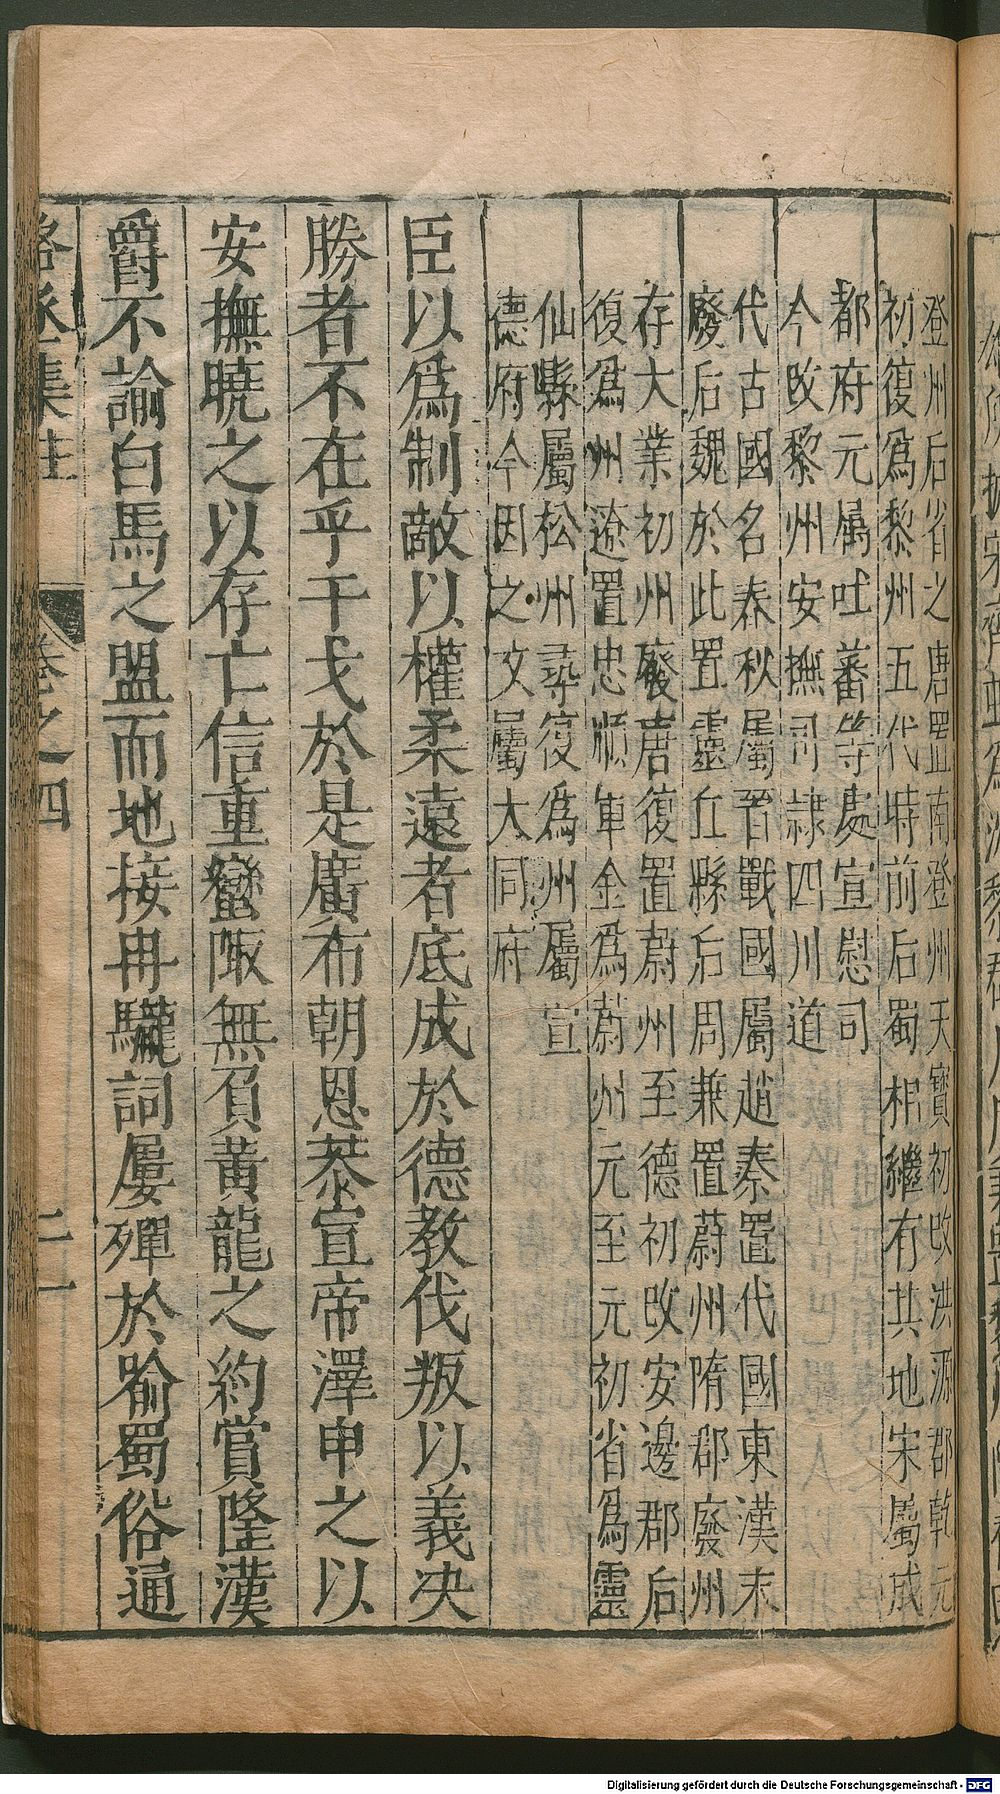 登州后省之唐置南登州天寶初改洪源郡乾元
初復爲黎州五代時前后蜀相繼有其地宋屬成
都府元屬吐蕃等處宣慰司
今改黎州安撫司隷四川道
代古國名春秋屬晉戰國屬趙秦置代國東漢末
廢后魏於此置靈丘縣后周兼置蔚州隋郡廢州
存大業初州廢唐復置蔚州至德初改安邊郡后
復爲州遼置忠順軍金爲蔚州元至元初省爲靈
仙縣屬松州尋復爲州屬宣
德府今因之文屬大同府
臣以爲制敵以權柔遠者底成於德教伐叛以義决
勝者不在乎干戈於是廣布朝恩恭宣帝澤申之以
安撫曉之以存亡信重蠻陬無負黃龍之約賞隆漢
爵不諭白馬之盟而地接冉駹詞屢殫於喻蜀俗通
駱丞集註 卷之四 二一
Digitalisierung gefördert durch die Deutsche Forschungsgemeinschaft - DFG